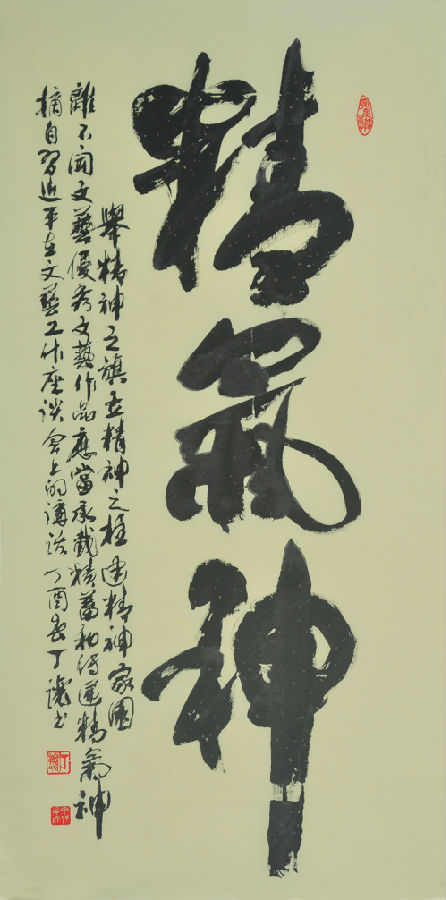 精氣神
舉精神之旗立精神之柱建精神家園
離不開文藝優秀文藝作品應當承載積蓄和傳遞精氣神
摘自習近平在文藝工作座談會上的講話丁酉春丁書